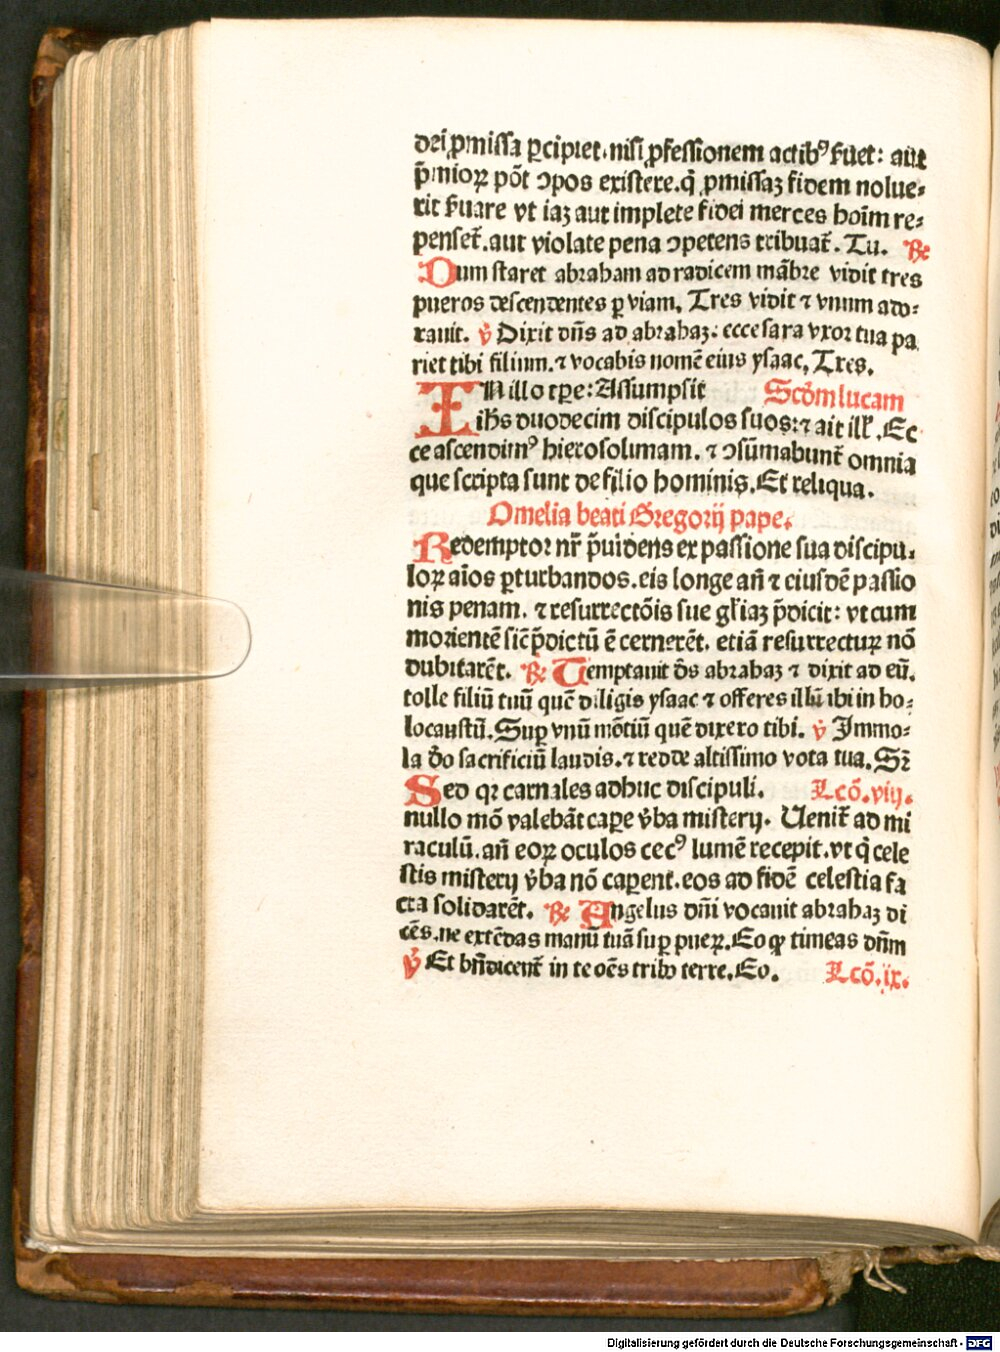 dei ꝓmissa ꝑcipiet. nisi ꝓfessionem actibꝰ ẜuet: aut
p̄mioꝝ pōt ↄpos existere. q̄ ꝓmissaꝫ fidem nolue⸗
rit ẜuare vt iaꝫ aut implete fidei merces hoīm re⸗
penset᷑. aut violate pena ↄpetens tribuat᷑. Tu. ℟
Dum staret abraham ad radicem mābre vidit tres
pueros descendentes ꝑ viam. Tres vidit ⁊ vnum ado⸗
rauit. ℣ Dixit dn̄s ad abrahaꝫ: ecce sara vxor tua pa
riet tibi filium. ⁊ vocabis nomē eius ysaac. Tres.
IN illo tꝑe: Assumpsit Scd̓m lucam
ih̄s duodecim discipulos suos: ⁊ ait ill̓. Ec
ce ascendimꝰ hierosolimam. ⁊ ↄsūmabunt᷑ omnia
que scripta sunt de filio hominis. Et reliqua.
Omelia beati Gregorij pape.
Redemptor nr̄ p̄uidens ex passione sua discipu⸗
loꝝ aīos ꝑturbandos. eis longe an̄ ⁊ eiusdē passio
nis penam. ⁊ resurrectōis sue gl̓iaꝫ p̄dicit: vt cum
morientē sic̄ p̄dictū ē cernerēt. etiā resurrecturꝝ nō
dubitarēt. ℟ Temptauit d̄s abrahaꝫ ⁊ dixit ad eū.
tolle filiū tuū quē diligis ysaac ⁊ offeres illū ibi in ho⸗
locaustū. Suꝑ vnū mōtiū quē dixero tibi. ℣ Immo⸗
la d̓o sacrificiū laudis. ⁊ redde altissimo vota tua. Sꝝ̄
Sed qꝛ carnales adhuc discipuli. Lcō. viij.
nullo mō valebāt caꝑe v̓ba misterij. Uenit᷑ ad mi
raculū. an̄ eoꝝ oculos cecꝰ lumē recepit. vt q̄ cele
stis misterij v̓ba nō caꝑent. eos ad fidē celestia fa
cta solidarēt. ℟ Angelus dn̄i vocauit abrahaꝫ di
cēs. ne extēdas manū tuā suꝑ pueꝝ. Eo ꝙ timeas dn̄m
℣ Et bn̄dicent᷑ in te oēs tribꝰ terre. Eo. Lcō. ix.
Digitalisierung gefördert durch die Deutsche Forschungsgemeinschaft - DFG